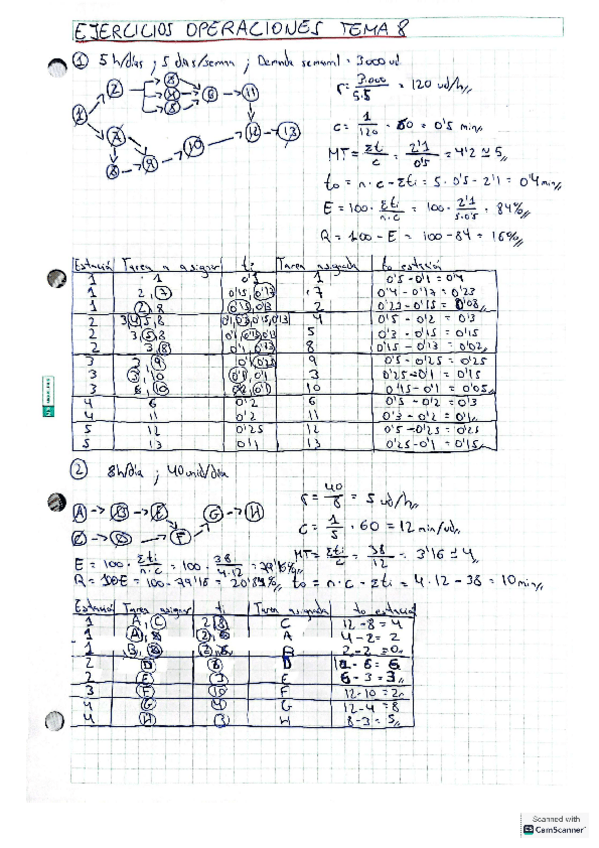 EJERCICIOS OPERACIONES TEMA 8
① 5 h/días ; 5 días/semana ; Demanda semanal = 3000 ud
r = 3.000 / 5·5 = 120 ud/h
1 2 3 4 5 6 11
c = 1/120 · 60 = 0'5 min
7 8 9 10 12 13
MT = Σti / c = 2'1 / 0'5 = 4'2 ≃ 5
to = n·c - Σti = 5·0'5 - 2'1 = 0'4 min
E = 100 · Σti / n·c = 100 · 2'1 / 5·0'5 = 84%
R = 100 - E = 100 - 84 = 16%
Estación Tarea a asignar ti Tarea asignada to estación
1 1 0'1 1 0'5 - 0'1 = 0'4
1 2, 7 0'15, 0'17 7 0'4 - 0'17 = 0'23
1 2, 8 0'15, 0'13 2 0'23 - 0'15 = 0'08
2 3, 4, 5, 8 4 0'5 - 0'2 = 0'3
2 3, 5, 8 5 0'3 - 0'15 = 0'15
2 3, 8 0'1, 0'13 8 0'15 - 0'13 = 0'02
3 3, 9 0'1, 0'25 9 0'5 - 0'25 = 0'25
3 3, 10 0'1, 0'1 3 0'25 - 0'1 = 0'15
3 6, 10 0'2, 0'1 10 0'15 - 0'1 = 0'05
4 6 0'2 6 0'5 - 0'2 = 0'3
4 11 0'2 11 0'3 - 0'2 = 0'1
5 12 0'25 12 0'5 - 0'25 = 0'25
5 13 0'1 13 0'25 - 0'1 = 0'15
② 8h/día ; 40 unid/día
r = 40 / 8 = 5 ud/h
A B E G H
C D F
c = 1/5 · 60 = 12 min/ud
E = 100 · Σti / n·c = 100 · 38 / 4·12 = 79'16%
MT = Σti / c = 38 / 12 = 3'16 ≃ 4
R = 100-E = 100 - 79'16 = 20'84%
to = n·c - Σti = 4·12 - 38 = 10 min
Estación Tarea asignar ti Tarea asignada to estación
1 A, C 2, 8 C 12 - 8 = 4
1 A, D 2, 6 A 4 - 2 = 2
1 B, D 2, 6 B 2 - 2 = 0
2 D 6 D 12 - 6 = 6
2 E 3 E 6 - 3 = 3
3 F 10 F 12 - 10 = 2
4 G 4 G 12 - 4 = 8
4 H 3 H 8 - 3 = 5
Scanned with
CamScanner